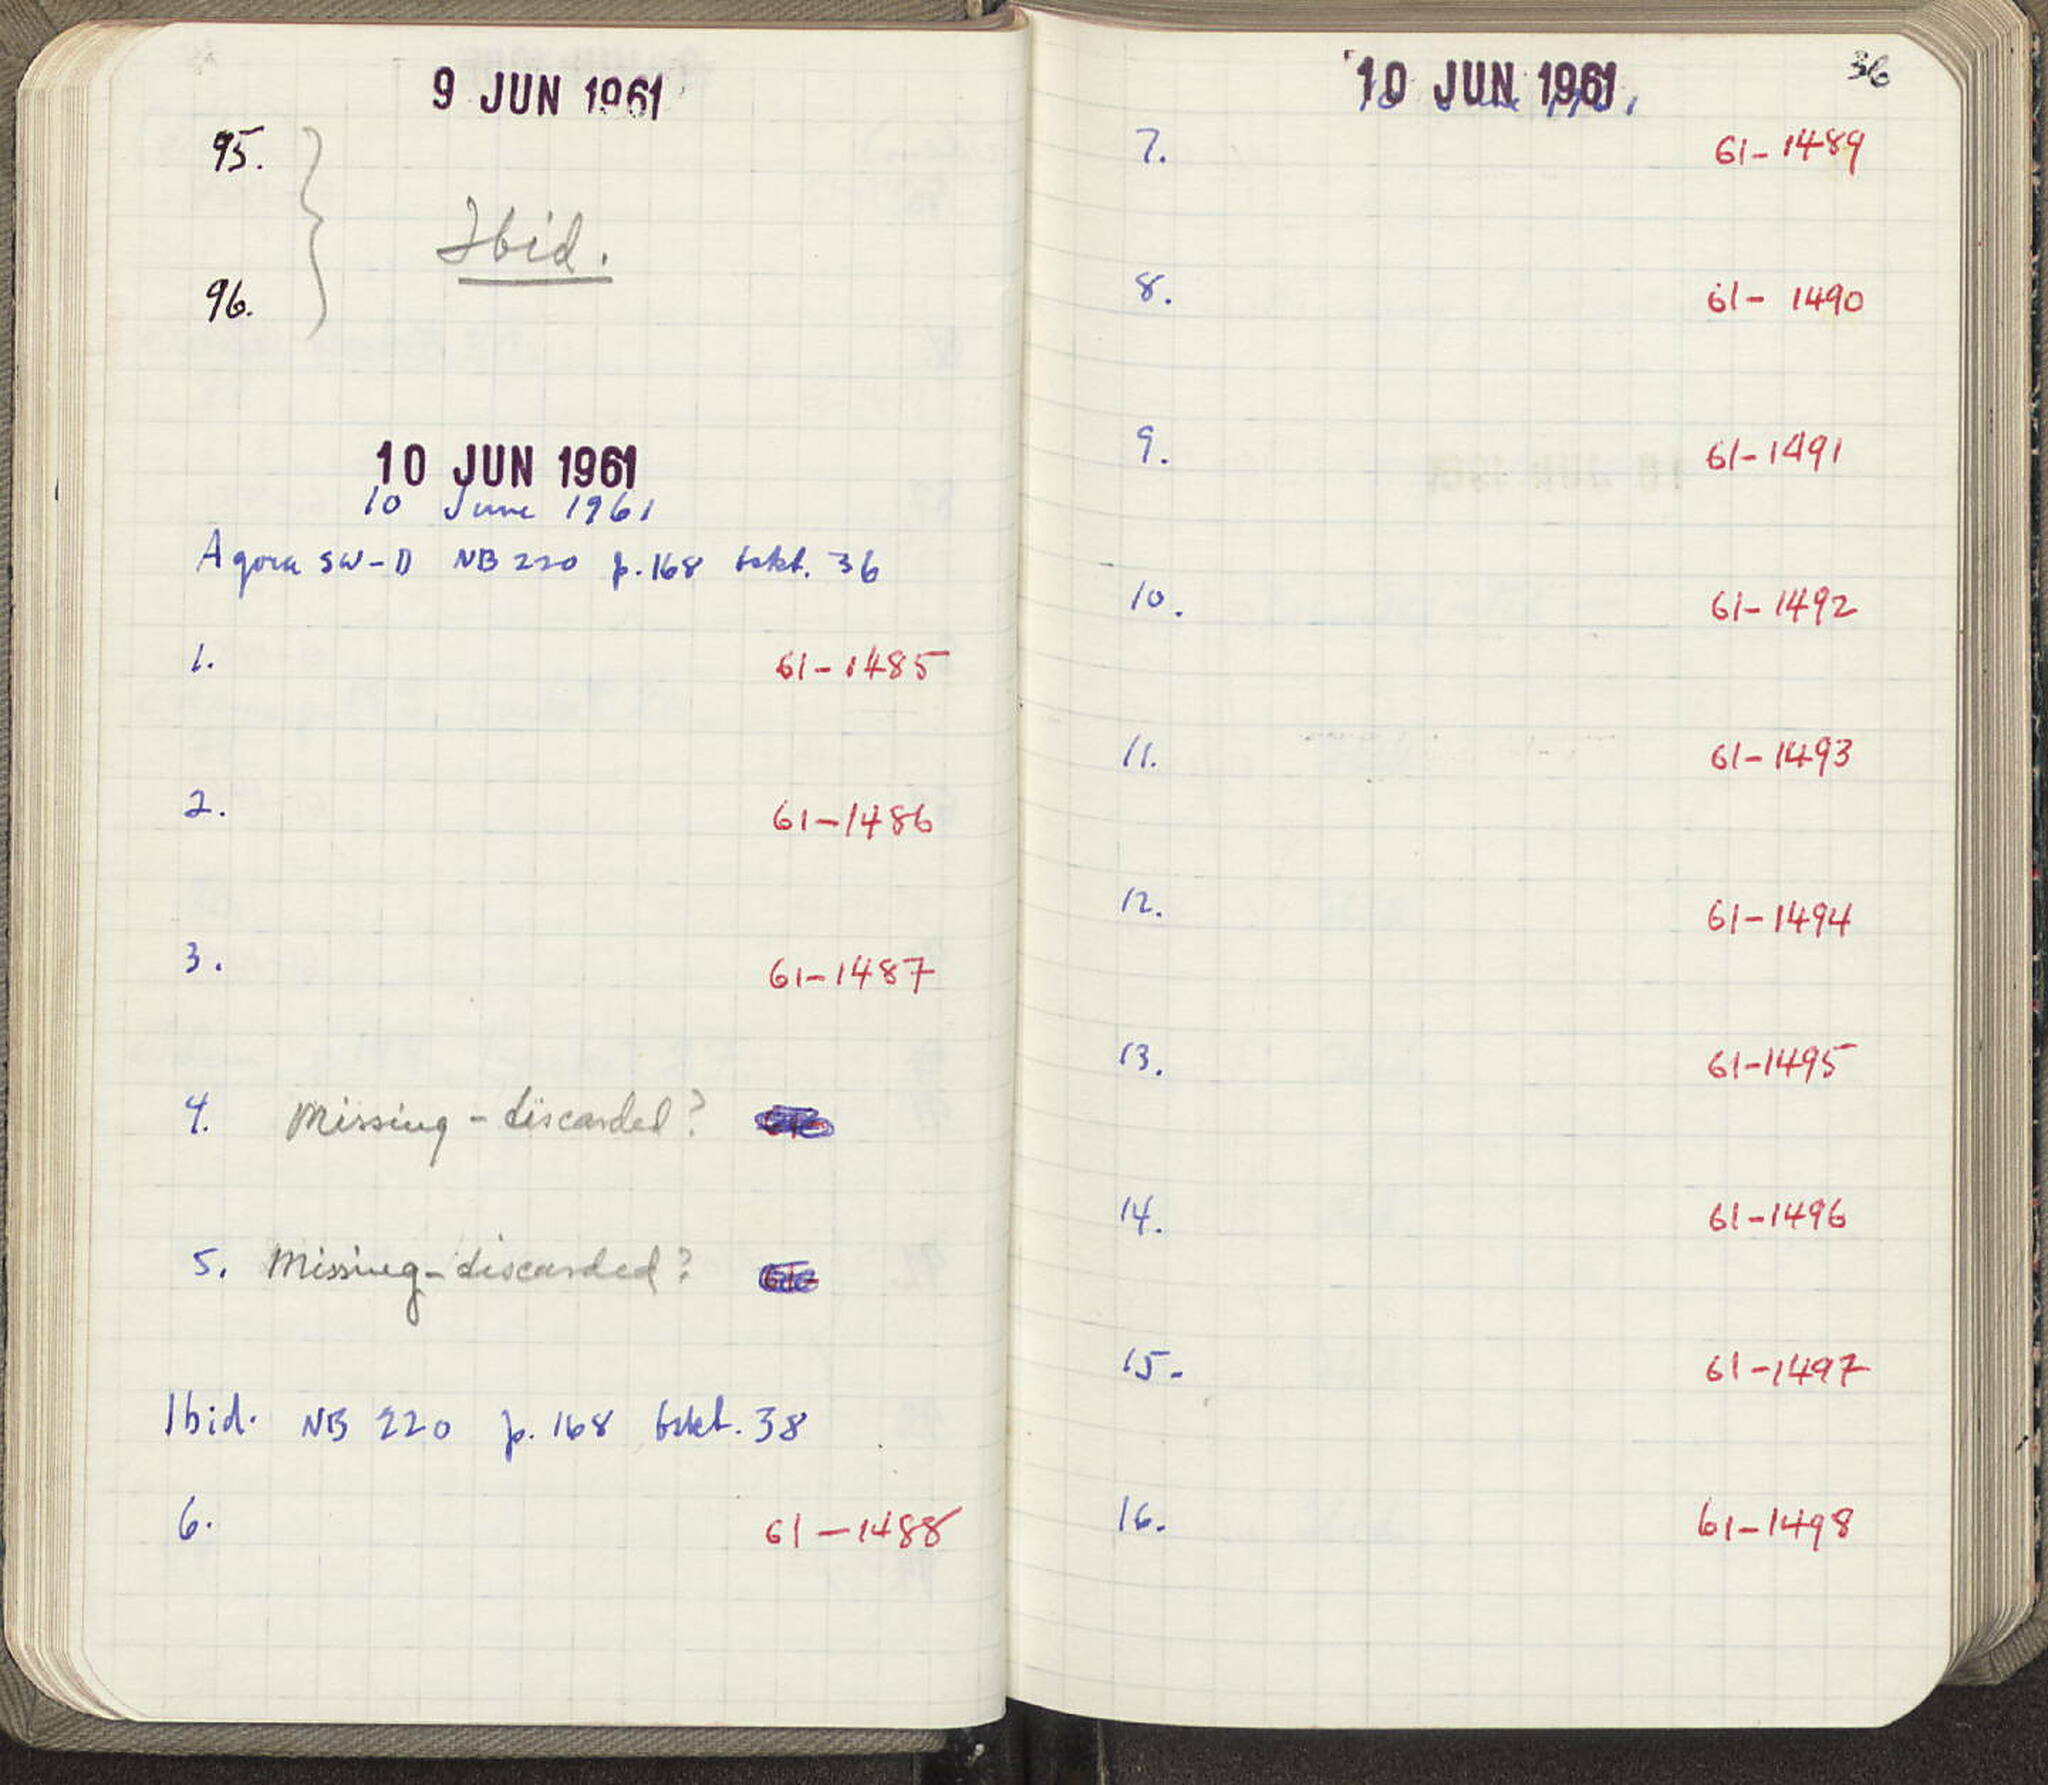 9 JUN 1961
95.
Ibid.
96.
10 JUN 1961
10 June 1961
Agora SW-D NB 220 p. 168 bskt. 36
1. 61-1485
2. 61-1486
3. 61-1487
4. Missing - discarded?
5. Missing - discarded?
Ibid. NB 220 p. 168 bskt. 38
6. 61-1488
36
10 JUN 1961
7. 61-1489
8. 61-1490
9. 61-1491
10. 61-1492
11. 61-1493
12. 61-1494
13. 61-1495
14. 61-1496
15. 61-1497
16. 61-1498